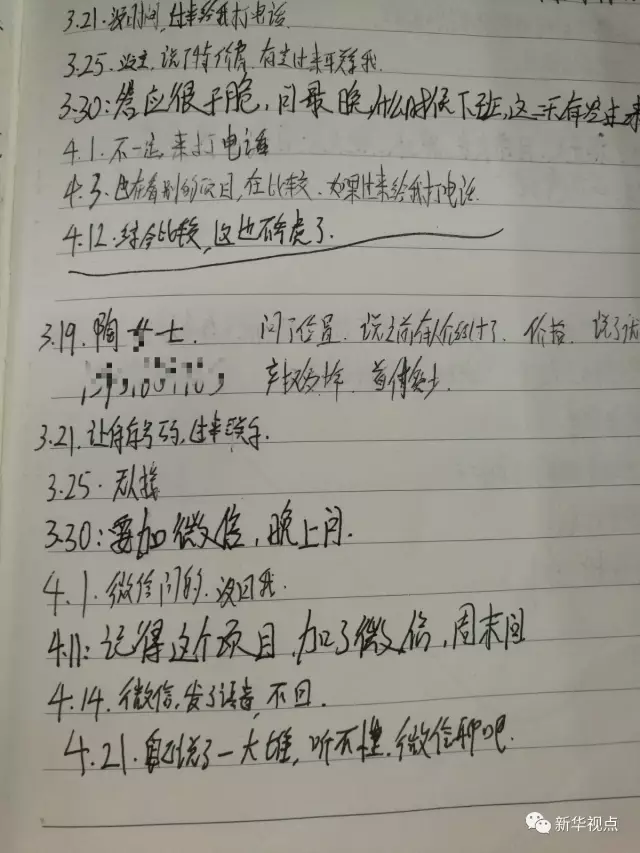 3.21.没时间,过来给我打电话.
3.25.没空,说了特价房,有空过来联系我.
3.30:答应很干脆,问最晚什么时候下班,这三天有空过来
4.1.不一定,来打电话
4.3.也在看别的项目,在比较.如果过来给我打电话.
4.12.综合比较,这也不考虑了.
3.19.陶女士. 问了位置.说之前有人介绍过了. 价格.说了
首付多少.
3.21.让存存号码,过来联系.
3.25.无人接
3.30:要加微信,晚上问.
4.1.微信问的.没回我.
4.11:记得这个项目,加了微信,周末回
4.14.微信,发了语音,不回.
4.21.自己说了一大堆,听不懂.微信聊吧.
新华视点